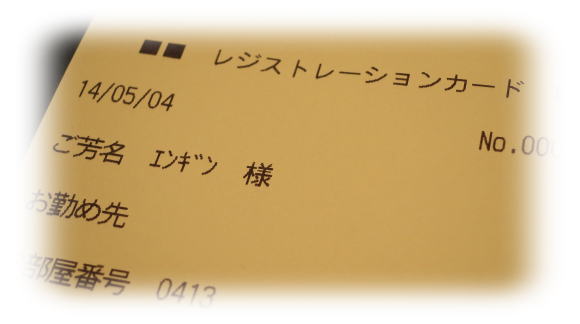 ■■ レジストレーションカード
14/05/04
No.000
ご芳名 ｴﾝｷﾞﾝ 様
お勤め先
部屋番号 0413